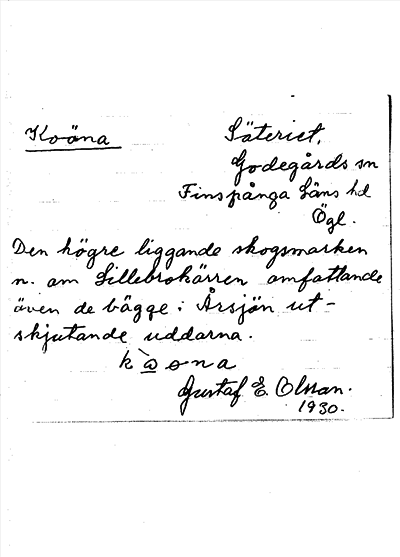 Koöna
Säteriet,
Godegårds sn
Finspånga Läns hd
Ögl.
Den högre liggande skogsmarken
n. om Lillebrokärren omfattande
även de bägge i Årsjön ut-
skjutande uddarna.
Gustaf E. Olsson.
1930.